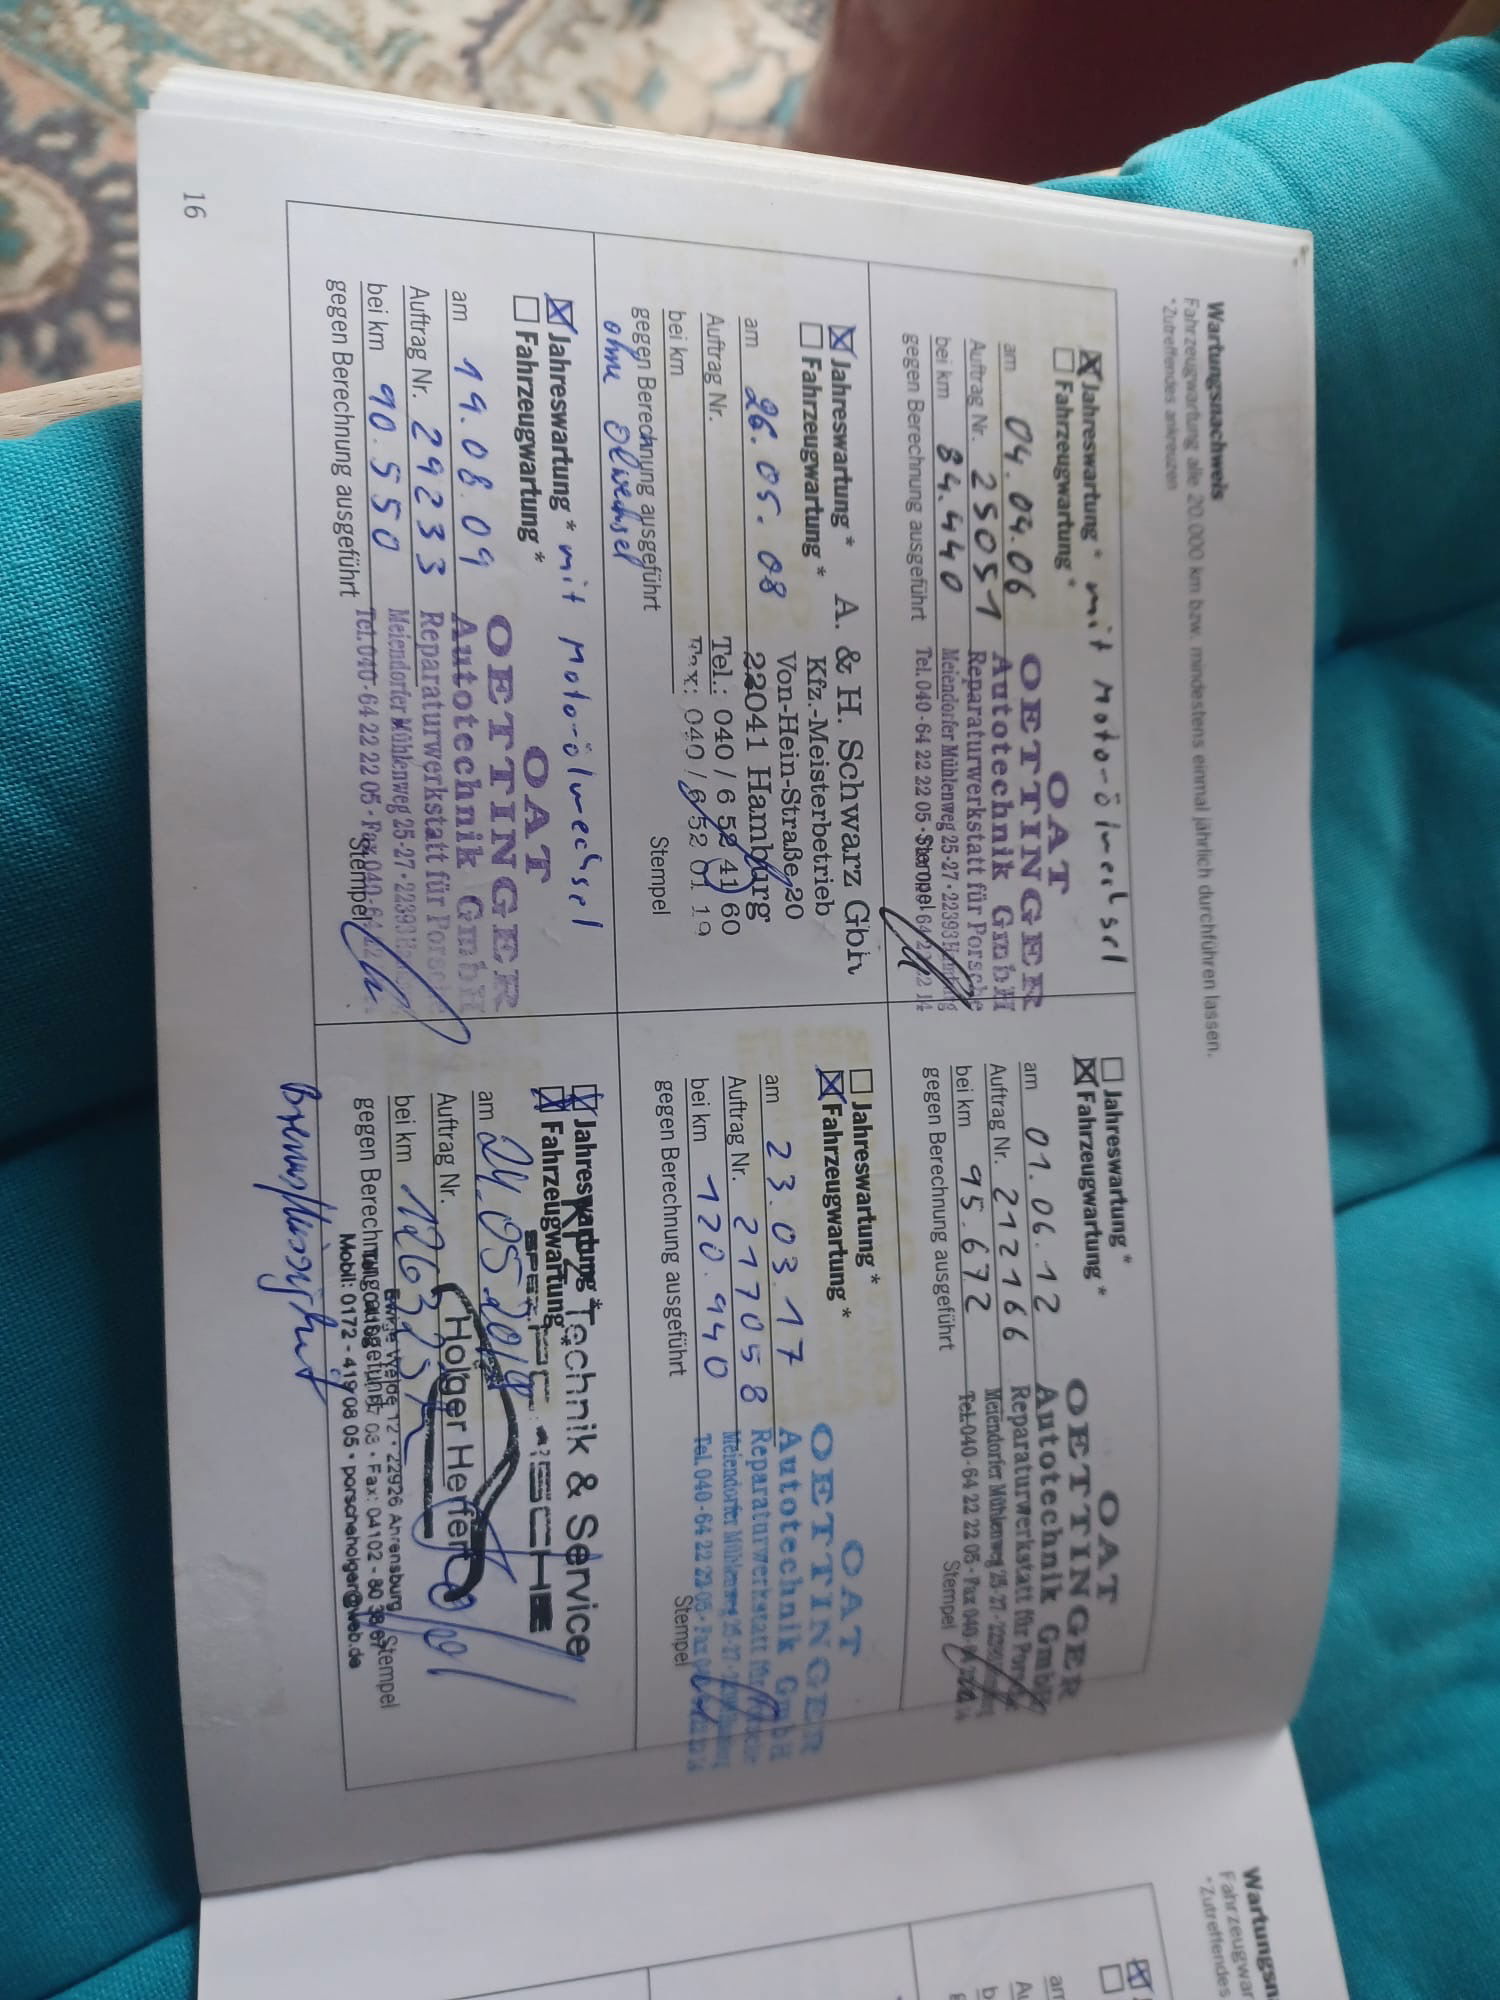 Wartungsnachweis
Fahrzeugwartung alle 20.000 km bzw. mindestens einmal jährlich durchführen lassen.
*Zutreffendes ankreuzen
Jahreswartung * mit Motorölwechsel
Fahrzeugwartung *
am 04.04.06
Auftrag Nr. 25051
bei km 84.440
gegen Berechnung ausgeführt
OAT
OETTINGER
Autotechnik GmbH
Reparaturwerkstatt für Porsche
Meiendorfer Mühlenweg 25-27 • 22393 Hamburg
Tel. 040 - 64 22 22 05 •
Stempel
Jahreswartung *
Fahrzeugwartung *
am 26.05.08
Auftrag Nr.
bei km
gegen Berechnung ausgeführt
ohne Ölwechsel
A. & H. Schwarz
Kfz.-Meisterbetrieb
Von-Hein-Straße 20
22041 Hamburg
Tel.: 040 / 6 52 41 60
Fax: 040 / 6 52 01 19
Stempel
Jahreswartung * mit Motorölwechsel
Fahrzeugwartung *
am 19.08.09
Auftrag Nr. 29233
bei km 90.550
gegen Berechnung ausgeführt
OAT
OETTINGER
Autotechnik GmbH
Reparaturwerkstatt für Porsche
Meiendorfer Mühlenweg 25-27 • 22393
Tel. 040 - 64 22 22 05 • Fax 040-
Stempel
16
Jahreswartung *
Fahrzeugwartung *
am 01.06.12
Auftrag Nr. 212166
bei km 95.672
gegen Berechnung ausgeführt
OAT
OETTINGER
Autotechnik GmbH
Reparaturwerkstatt für Porsche
Meiendorfer Mühlenweg 25-27 •
Tel. 040 - 64 22 22 05 • Fax 040-
Stempel
Jahreswartung *
Fahrzeugwartung *
am 23.03.17
Auftrag Nr. 217058
bei km 120.940
gegen Berechnung ausgeführt
OAT
OETTINGER
Autotechnik GmbH
Reparaturwerkstatt für
Meiendorfer Mühlenweg 25-27 •
Tel. 040 - 64 22 22 05 • Fax
Stempel
Jahreswartung *
Fahrzeugwartung *
am 24.05.2019
Auftrag Nr.
bei km
gegen Berechnung ausgeführt
Bremsflüssigkeit
KFZ Technik & Service
Holger Herfert
12 • 22926 Ahrensburg
Fax: 04102 - 80 38 67
Mobil: 0172 - 419 08 05 • porscheholger@web.de
Stempel
Wartungsn
Fahrzeugwar
*Zutreffendes
am
Au
b
g